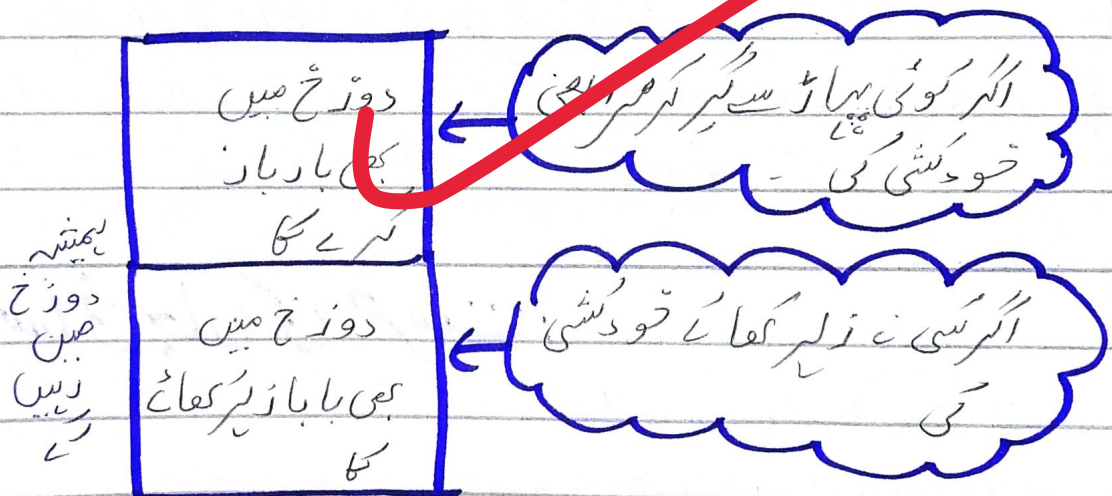 اگر کوئی پہاڑ سے گر کر مرا یعنی
خودکشی کی ۔
دوزخ میں
بھی بار بار
گرے گا
اگر کسی نے زہر کھا کے خودکشی
کی
دوزخ میں
بھی بابا زہر کھائے
گا
ہمیشہ
دوزخ
میں
رہیں
گے